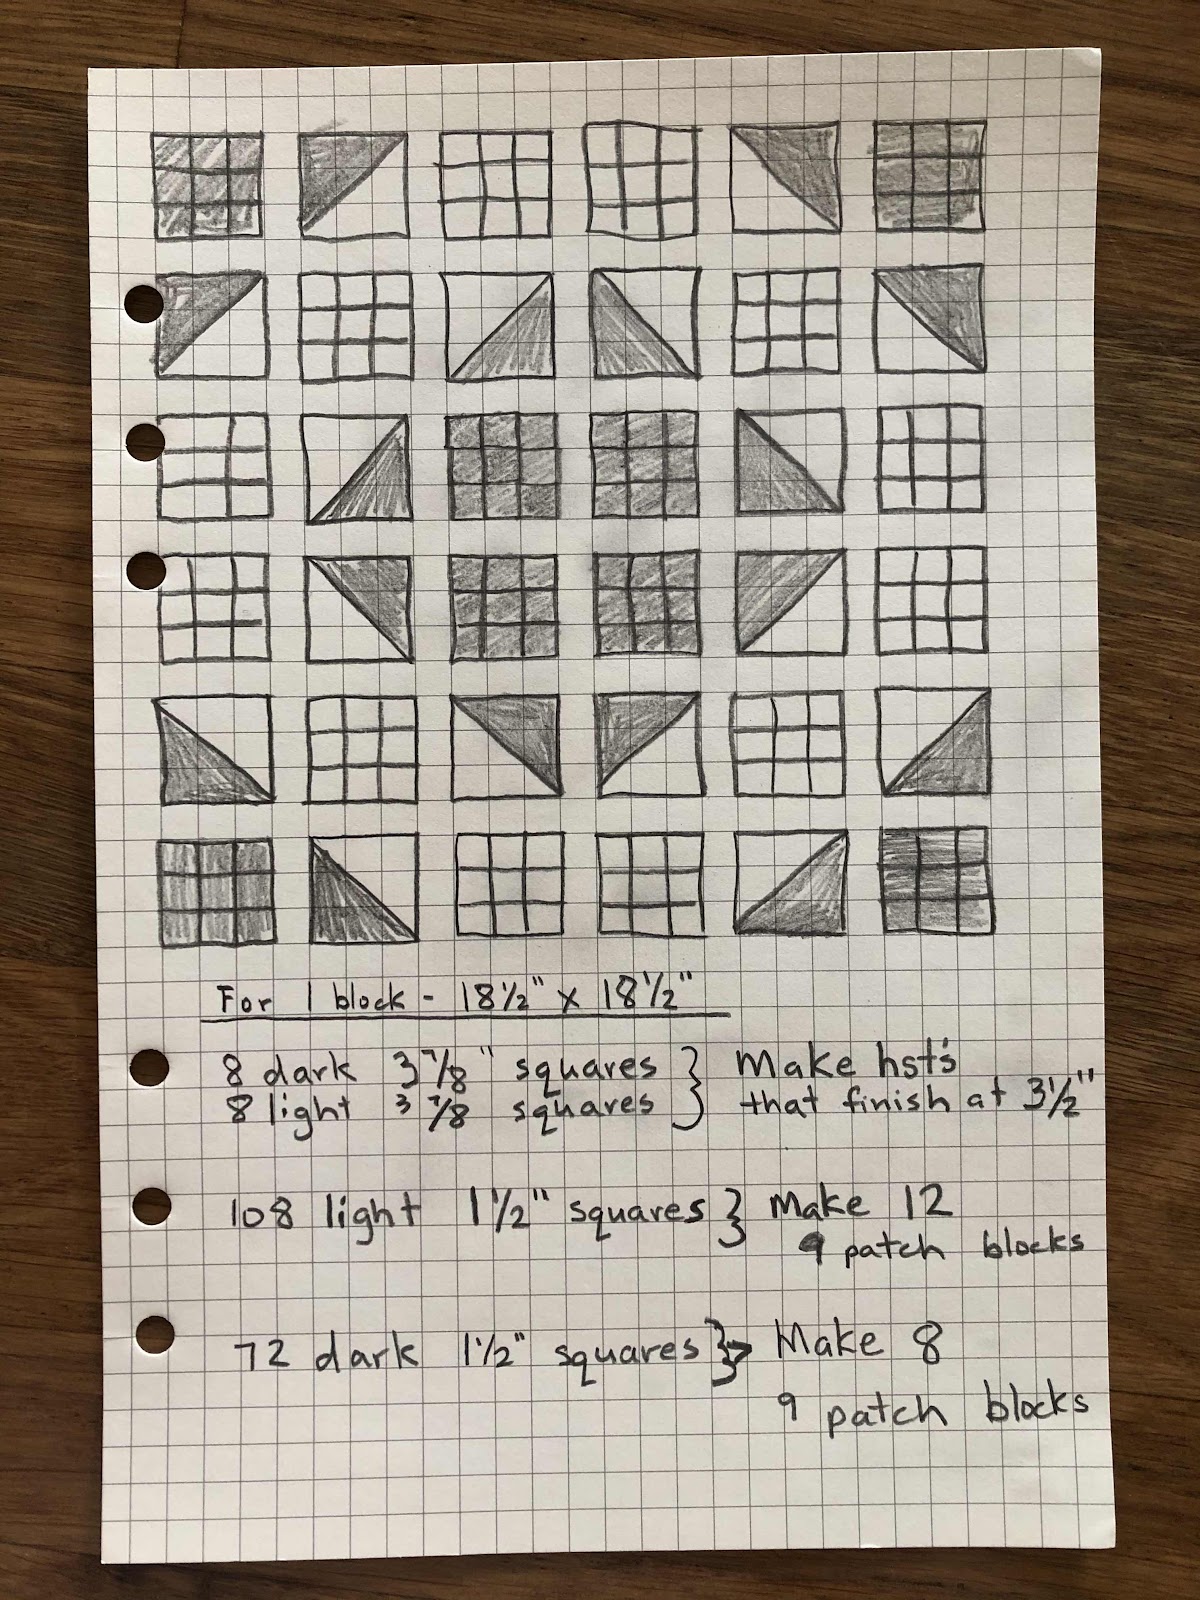 For 1 block - 18½" x 18½"
8 dark 3 7/8" squares } Make hst's
8 light 3 7/8 squares } that finish at 3½"
108 light 1½" squares } Make 12
9 patch blocks
72 dark 1½" squares } → Make 8
9 patch blocks